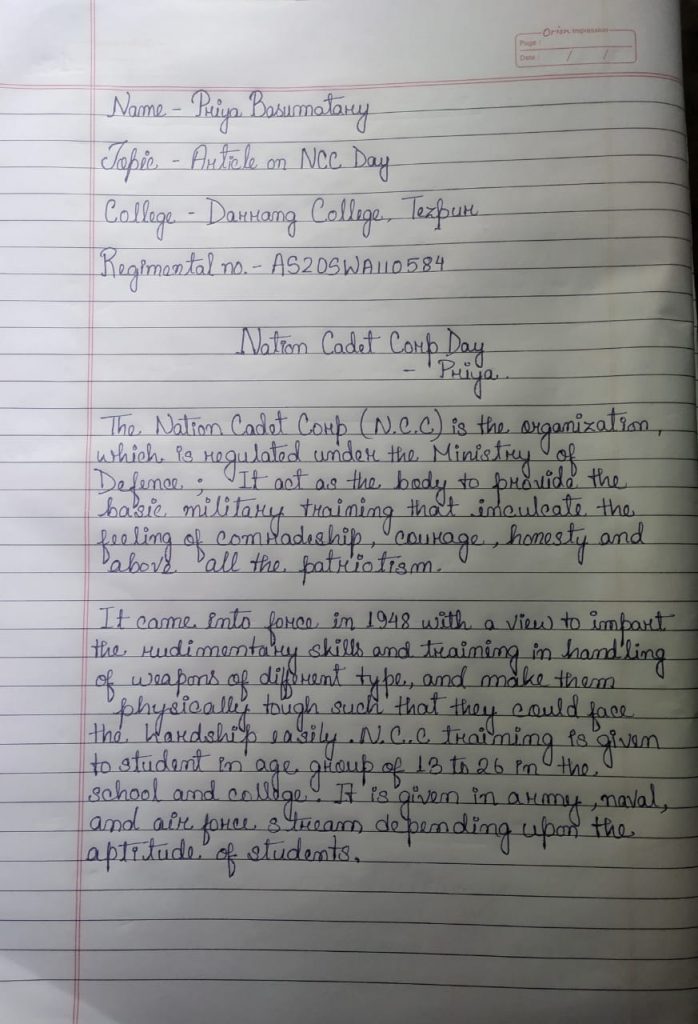 Orion Impression
Page :
Date : / /
Name - Priya Basumatary
Topic - Article on NCC Day
College - Darrang College, Tezpur
Regimental no. - AS20SWA110584
Nation Cadet Corp Day
- Priya.
The Nation Cadet Corp (N.C.C) is the organization,
which is regulated under the Ministry of
Defence; It act as the body to provide the
basic military training that inculcate the
feeling of comradeship, courage, honesty and
above all the patriotism.
It came into force in 1948 with a view to impart
the rudimentary skills and training in handling
of weapons of different type, and make them
physically tough such that they could face
the hardship easily. N.C.C training is given
to student in age group of 13 to 26 in the
school and college. It is given in army, naval,
and air force stream depending upon the
aptitude of students.